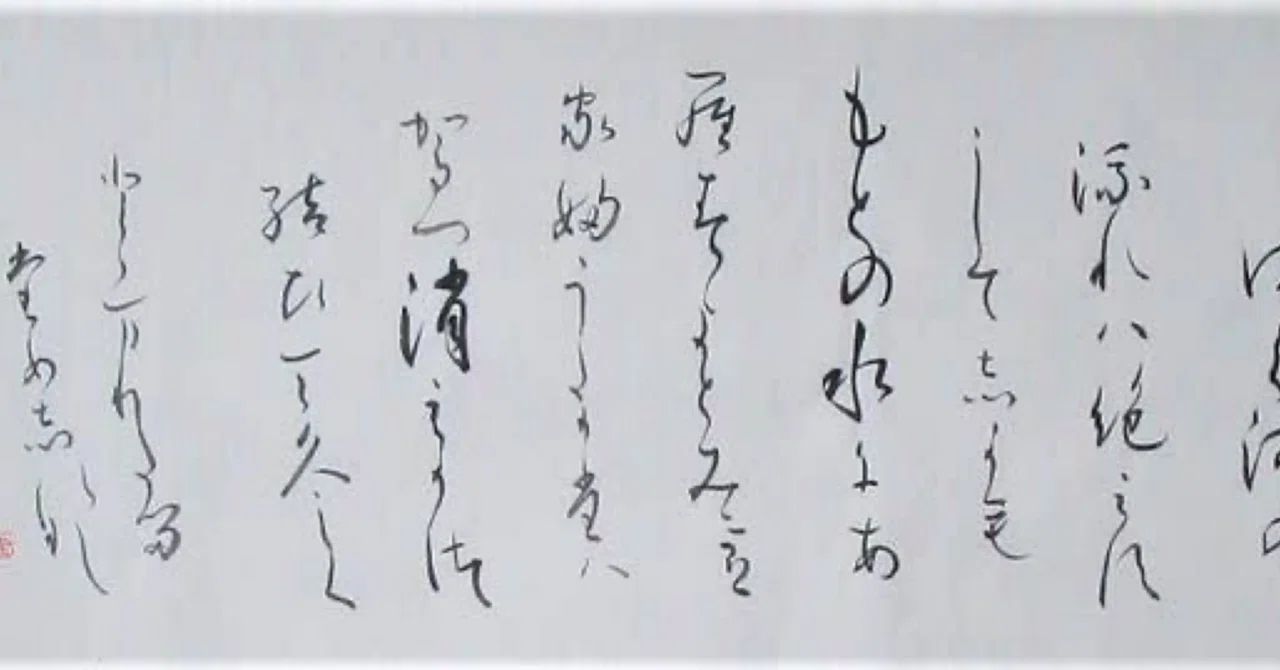 ゆく河の
流れハ絶えす
して志か毛
もとの水にあ
羅春よとみにう
家婦うたか堂ハ
かつ消えかつ
結ひて久しく
とゝまりたる
堂め志なし